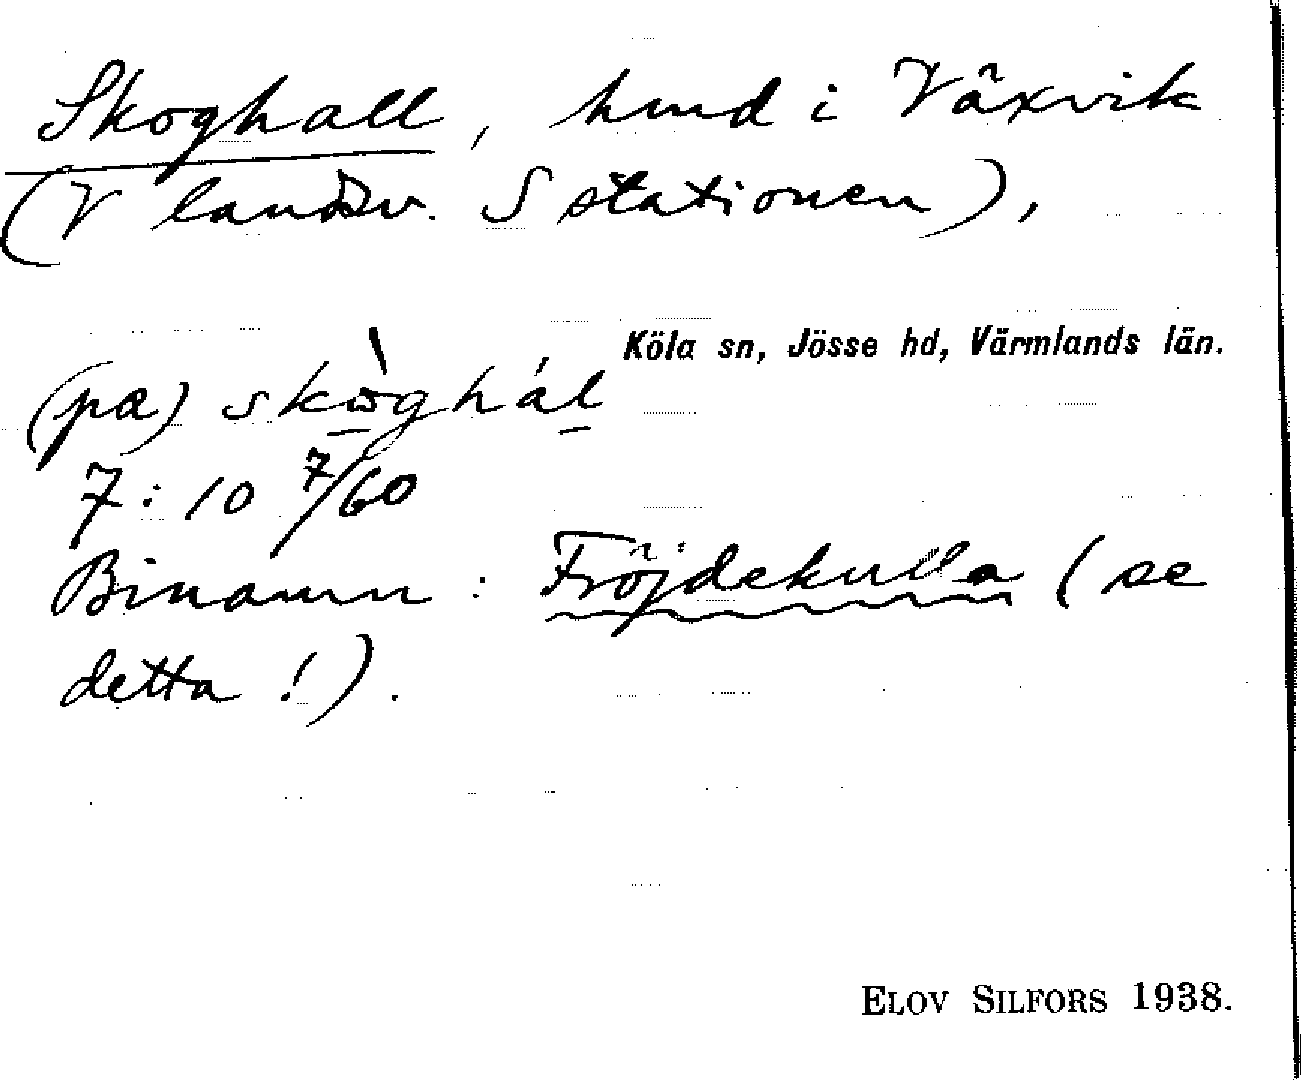 Skoghall, hmd i Växvik
(V landsv. S stationen),
Köla sn, Jösse hd, Värmlands län.
(pæ) skòghál
7:10 7/60
Binamn : Fröjdekulla (se
detta !).
ELOV SILFORS 1938.